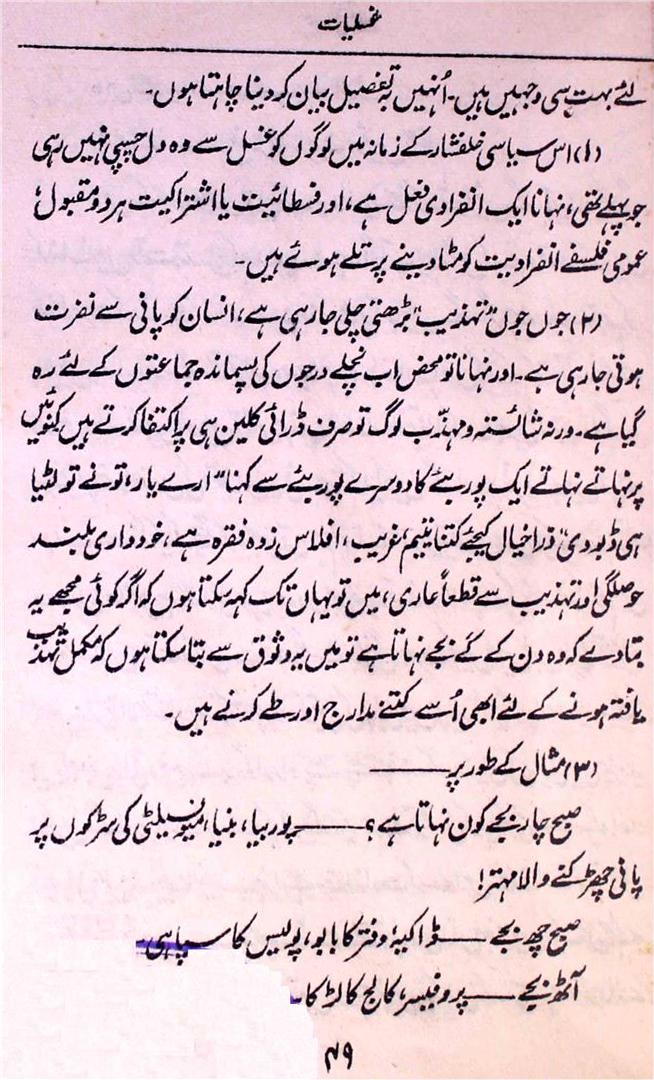 غسلیات
لئے بہت سی وجہیں ہیں۔ اُنہیں بہ تفصیل بیان کر دینا چاہتا ہوں۔
(۱) اس سیاسی خلفشار کے زمانہ میں لوگوں کو غسل سے وہ دل چسپی نہیں رہی
جو پہلے تھی، نہانا ایک انفرادی فعل ہے، اور فسطائیت یا اشتراکیت ہر دو مقبول؛
عمومی فلسفے انفرادیت کو مٹا دینے پر تلے ہوئے ہیں۔
(۲) جوں جوں "تہذیب" بڑھتی چلی جا رہی ہے، انسان کو پانی سے نفرت
ہوتی جا رہی ہے۔ اور نہانا تو محض اب نچلے درجوں کی پسماندہ جماعتوں کے لئے رہ
گیا ہے۔ ورنہ شائستہ و مہذّب لوگ تو صرف ڈرائی کلین ہی پر اکتفا کرتے ہیں کنوئیں
پر نہاتے نہاتے ایک پوربئے کا دوسرے پوربئے سے کہنا "ارے یار، تو نے تو لٹیا
ہی ڈبو دی" ذرا خیال کیجئے کتنا یتیم، غریب، افلاس زدہ فقرہ ہے، خودداری بلند
حوصلگی اور تہذیب سے قطعاً عاری، میں تو یہاں تک کہہ سکتا ہوں کہ اگر کوئی مجھے یہ
بتا دے کہ وہ دن کے کَے بجے نہاتا ہے تو میں یہ وثوق سے بتا سکتا ہوں کہ مکمل تہذیب
یافتہ ہونے کے لئے ابھی اُسے کتنے مدارج اور طے کرنے ہیں۔
(۳) مثال کے طور پر ——
صبح چار بجے کون نہاتا ہے؟ —— پوربیا، بنیا، میونسپلٹی کی سڑکوں پر
پانی چھڑکنے والا مہتر!
صبح چھ بجے —— ڈاکیہ، دفتر کا بابو، پولیس کا سپاہی۔
آٹھ بجے —— پروفیسر، کالج کا لڑکا۔
۴۹